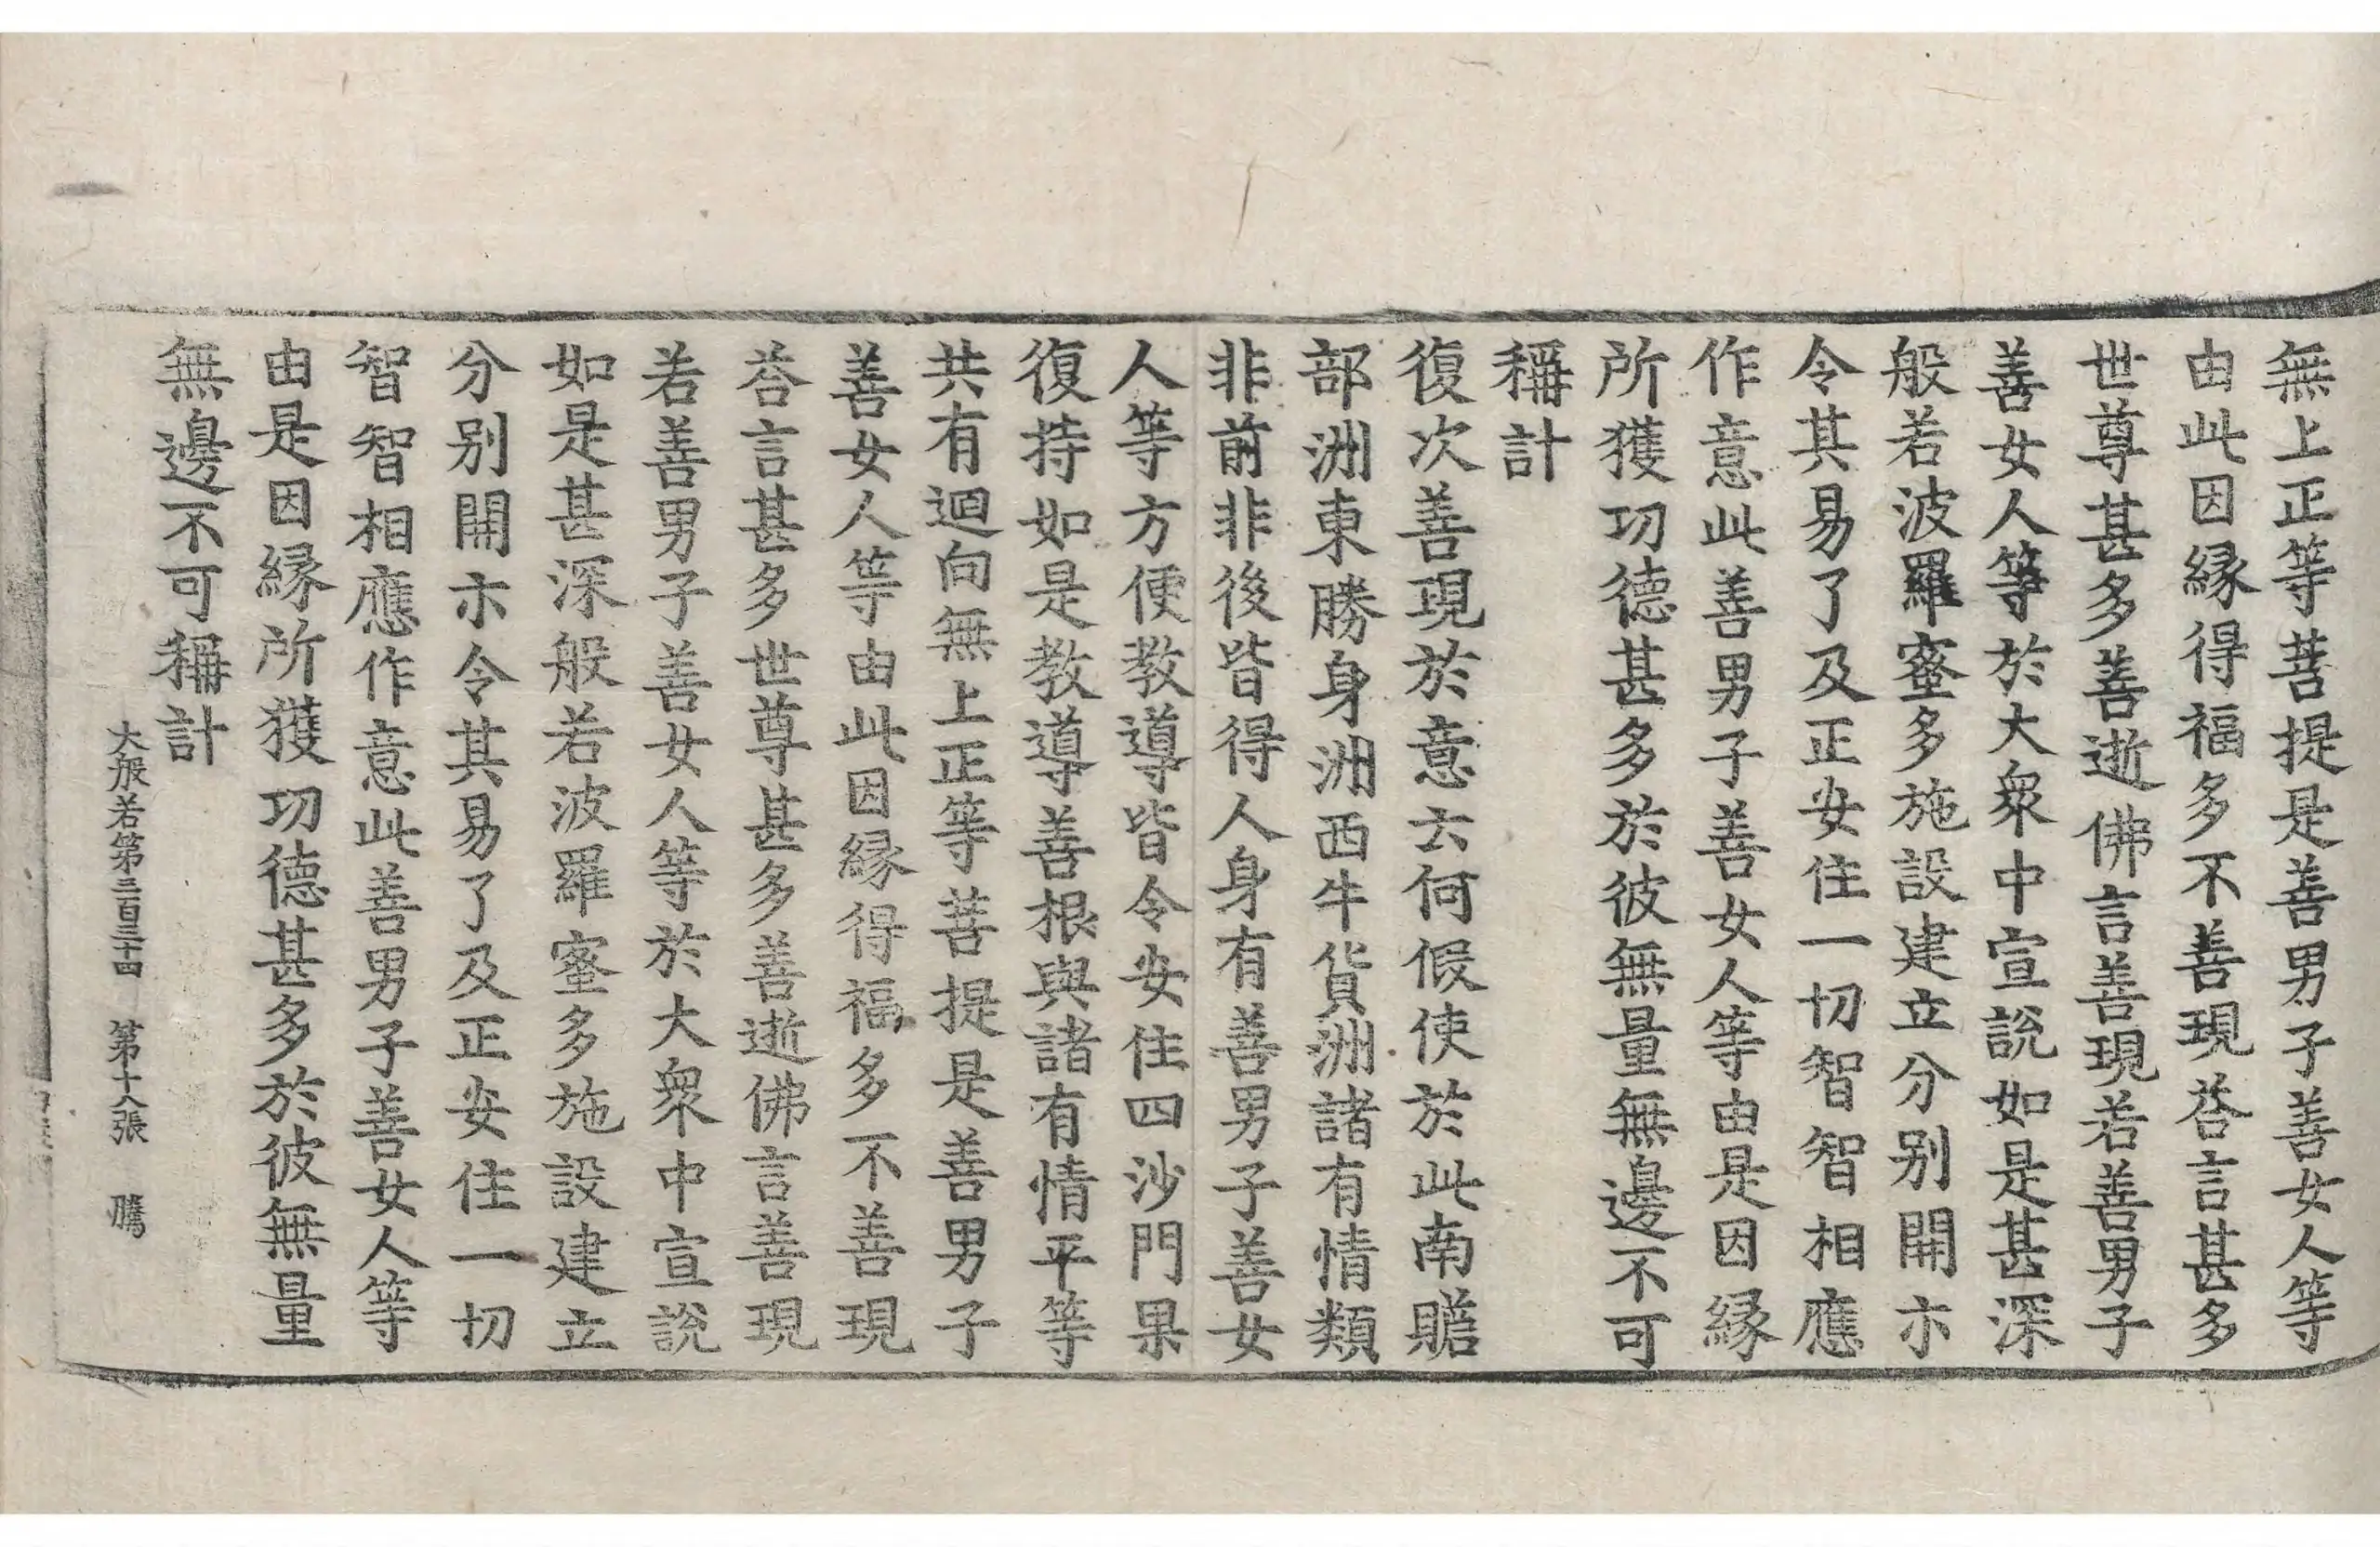 無上正等菩提是善男子善女人等
由此因緣得福多不善現荅言甚多
世尊甚多善逝佛言善現若善男子
善女人等於大衆中宣說如是甚深
般若波羅蜜多施設建立分别開示
令其易了及正安住一切智智相應
作意此善男子善女人等由是因緣
所獲功德甚多於彼無量無邊不可
稱計
復次善現於意云何假使於此南贍
部洲東勝身洲西牛貨洲諸有情類
非前非後皆得人身有善男子善女
人等方便教導皆令安住四沙門果
復持如是教導善根與諸有情平等
共有迴向無上正等菩提是善男子
善女人等由此因緣得福多不善現
荅言甚多世尊甚多善逝佛言善現
若善男子善女人等於大衆中宣說
如是甚深般若波羅蜜多施設建立
分别開示令其易了及正安住一切
智智相應作意此善男子善女人等
由是因緣所獲功德甚多於彼無量
無邊不可稱計
大般若第三百三十四 第十八張 騰